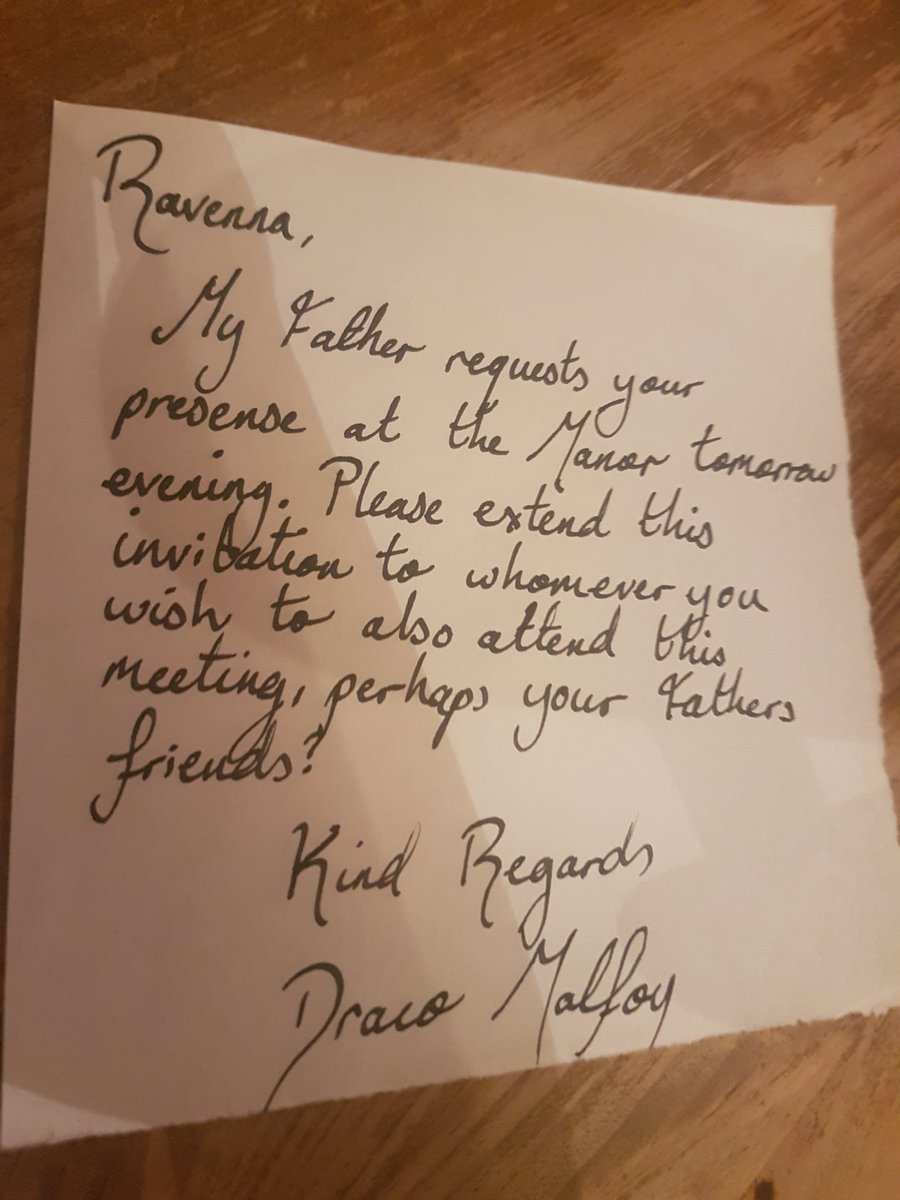 Ravenna,
My Father requests your
presense at the Manor tomorrow
evening. Please extend this
invitation to whomever you
wish to also attend this
meeting, perhaps your Fathers
friends?
Kind Regards
Draco Malfoy